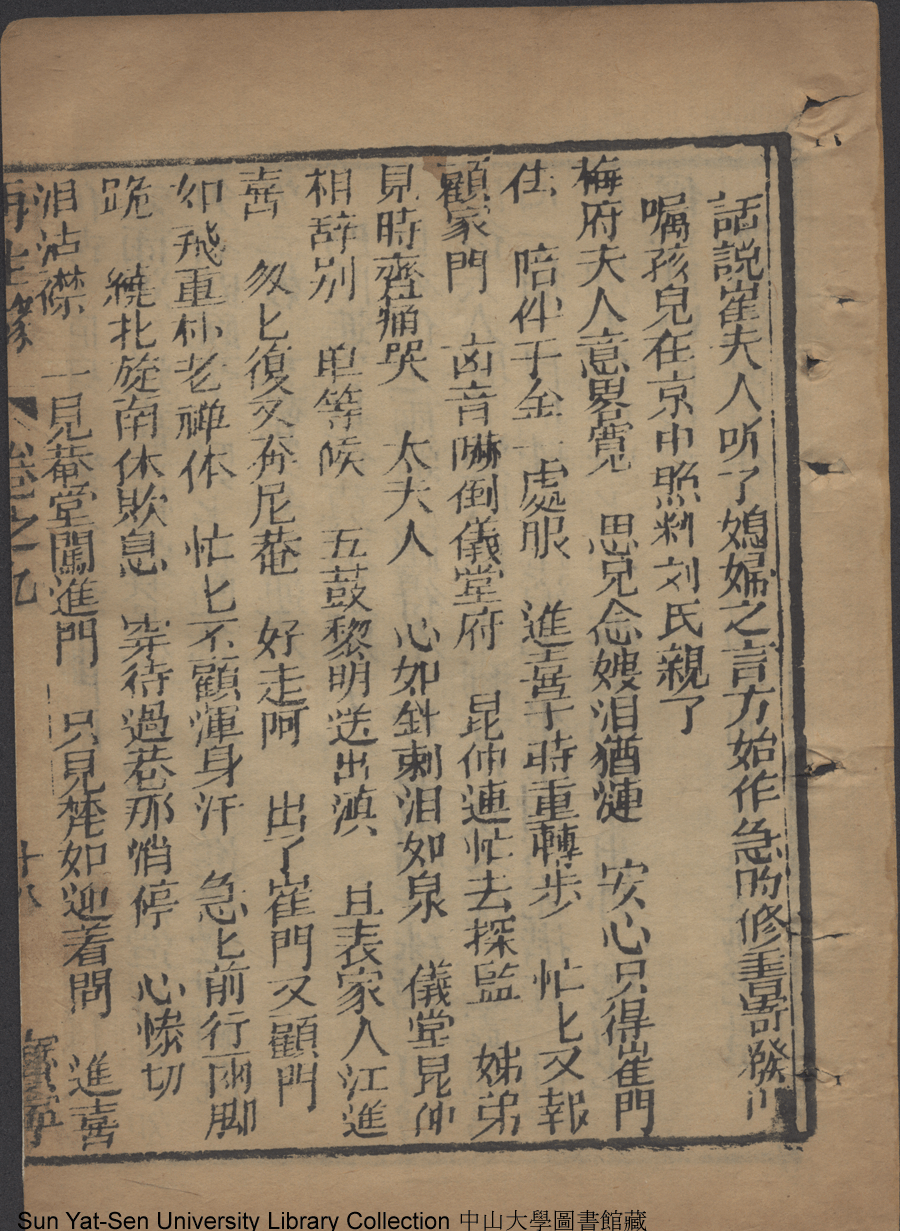 話說崔夫人听了媳婦之言方始作急的修書寄發
嘱孩兒在京中照料刘氏親了
梅府夫人意畧寬　思兒念嫂泪猶漣　安心只得崔門
住　陪伴千金一處眠　進喜于時重轉步　忙匕又報
顧家門　凶音嚇倒儀堂府　昆仲連忙去探監　姊弟
見時齊痛哭　太夫人　心如針刺泪如泉　儀堂昆仲
相辞別　単等候　五鼓黎明送出滇　且表家人江進
喜　匆匕復又奔尼菴　好走呵　出了崔門又顧門
如飛重朴老禅林　忙匕不顧渾身汗　急匕前行兩脚
跪　繞北旋南休歇息　穿街過巷那消停　心懐切
泪沾襟　一見菴堂闖進門　只見梵如迎着問　進喜
再生緣　卷之九　十八　寶寧
Sun Yat-Sen University Library Collection 中山大學圖書館藏